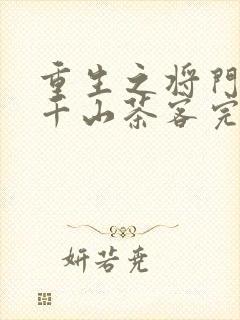 重生之将門
千山茶客完
妍若尧